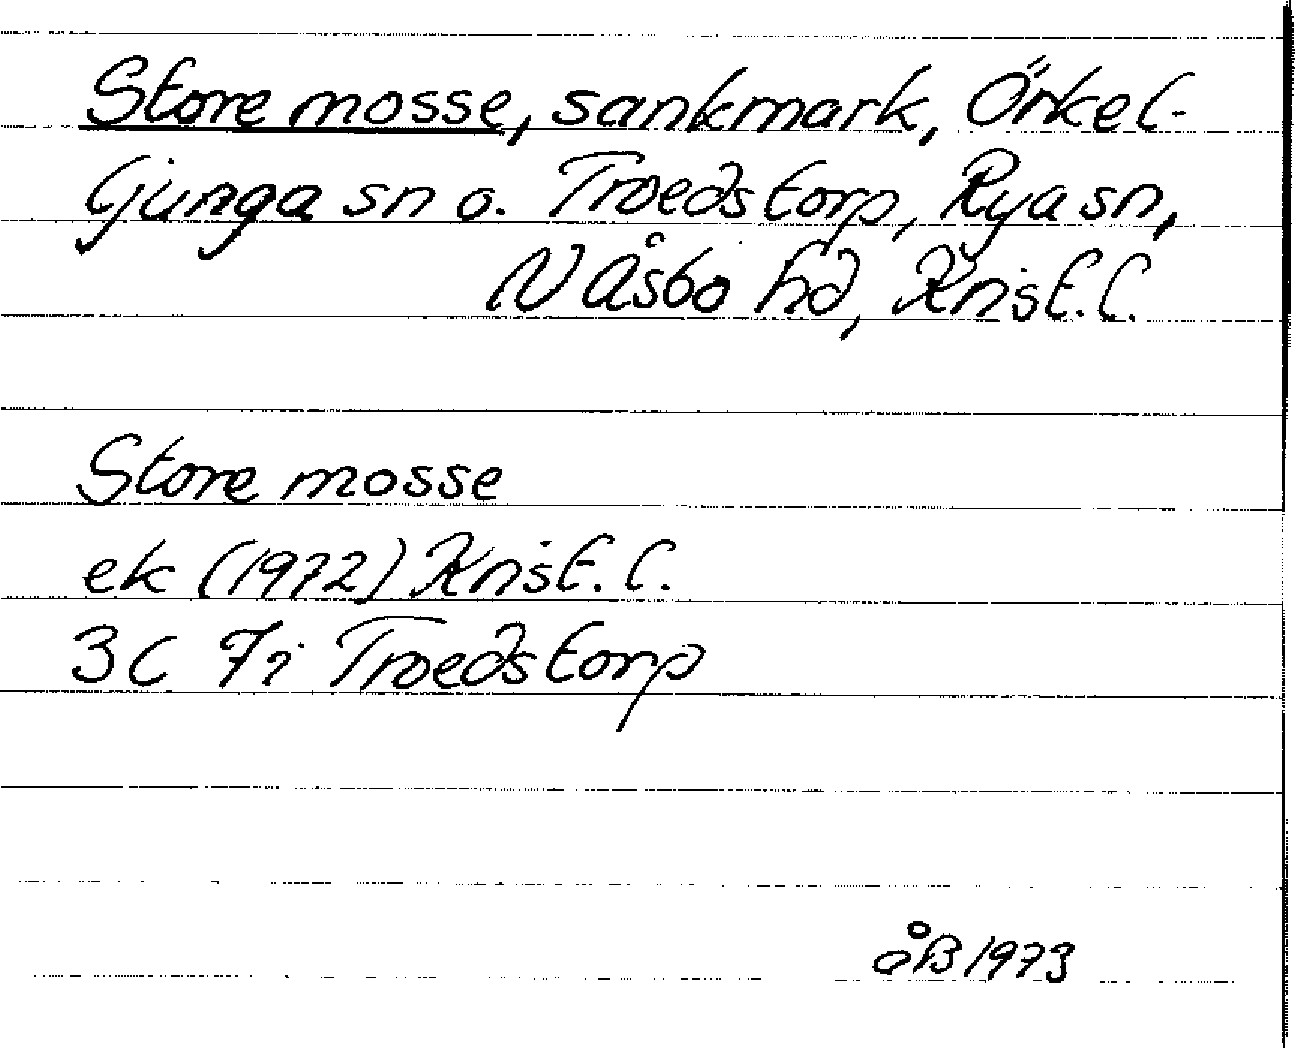 Store mosse, sankmark, Örkel-
ljunga sn o. Troedstorp, Rya sn,
N Åsbo hd, Krist. l.
Store mosse
ek (1972) Krist. l.
3C 7i Troedstorp
åB 1973